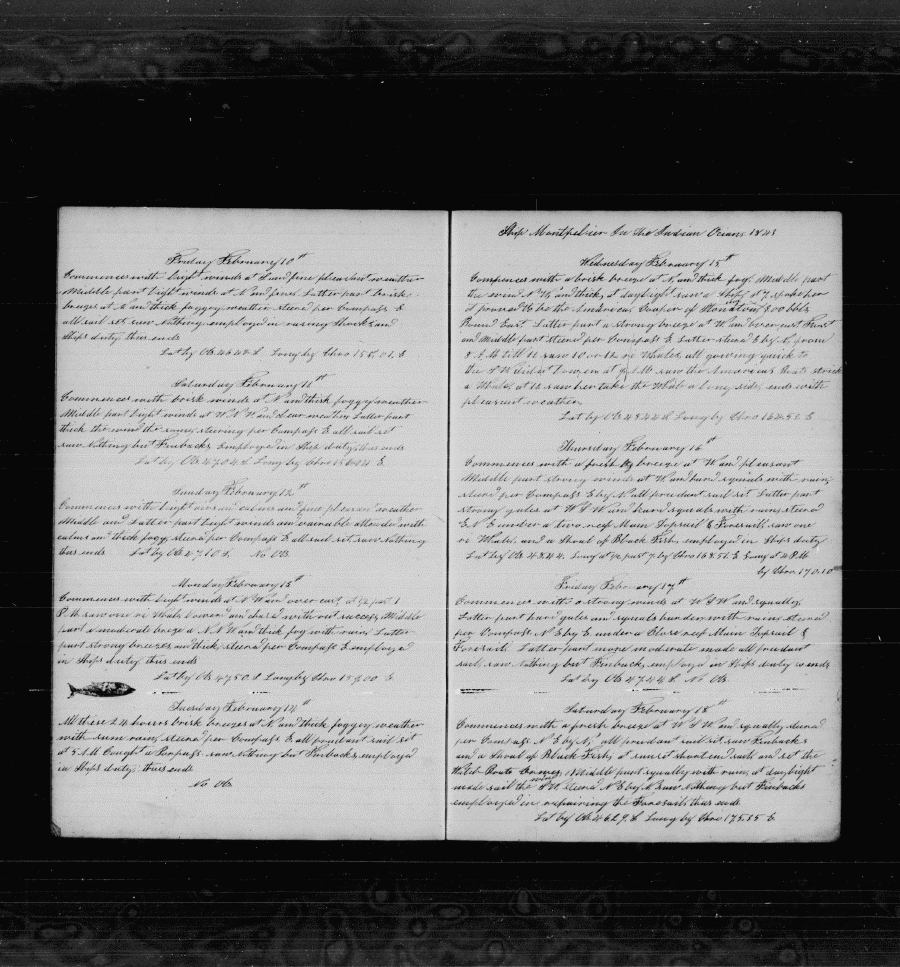 Friday February 10th
Commences with light winds at and fine pleasant weather
Middle part light winds at N and fine Latter part brisk
breeze at N and thick foggey weather steerd per Compass E
all sail set saw Nothing employed in and
Ships duty thus ends
Lat by Ob 48.48 S Long by Chro 151.01. E
Saturday February 11th
Commences with brisk winds at N and thick foggey weather
Middle part light winds at W.N.W and clear weather Latter part
thick the wind the same, steering per Compass E all sail set
saw Nothing but Finbacks Employed in Ship duty, thus ends
Lat by Ob 47.04 S Long by Chro 156.04 E
Sunday February 12th
Commences with light airs and calmes and fine pleasant weather
Middle and Latter part light winds and vairable attended with
calms and thick fogg, steerd per Compass E all sail set, saw Nothing
thus ends Lat by Ob 47.10 S. No Ob.
Monday February 13th
Commences with light winds at N.W and over cast, at 1/2 past 1
P.M. saw one rt Whale lowerd and chaised with out success, Middle
part a moderate breze at N.N.W and thick fog with rain, Latter
part strong breezes and thick, steerd per Compass E employed
in Ships duty thus ends
Lat by Ob 47.50. S Long by Chro 159.00 E
Tuesday February 14th
All these 24 hours brisk breezes at N and thick foggey weather
with sum rain, steerd per Compass E all prudant sail set
at 5 A.M Caught a Porpass. saw Nothing but Finbacks employed
in Ships duty, thus ends
No Ob.
Ship Montpelier In the Indian Oceans 1843
Wednesday February 15th
Commences with a brisk breeze at N. and thick fog, Middle part
the wind N.W. and thick, at daylight saw a Ship, at 7, spoke her
it proved to be the Amaricas Cooper of 800 bbls
Bound East. Latter part a strong breeze at W. and over cast First
and Middle part steerd per Compass E Latter steerd E by S. from
8 A.M till 11 saw 10 or 12 rt Whales all gowing quick to
the S.W did not lower, at 9 A.M. saw the Amaricas boats strick
a Whale, at 12 saw her take the Whale a long side, ends with
pleasant weather.
Lat by Ob 48.44 S Long by Chro 164.52 E
Thursday February 16th
Commences with a fresh breeze at W and pleasant
Middle part strong winds at W. and hard squals with rain,
steerd per Compass E by N. all prudant sail set Latter part
strong gales at W.S.W and hard squals with rain, steerd
E.N.E under a two reef Main Topsail & Foresail, saw one
rt Whale, and a Shoal of Black Fish, employed in Ships duty
Lat by Ob 48.44. Long at 1/2 past 7. by Chro 168.51 E Long at 4 P.M
by Chro 170.10
Friday February 17th
Commences with a strong winds at W.S.W and squally,
Latter part hard gales and squals harder with rain, steerd
per Compass N.E by E. under a Close reef Main Topsail &
Foresail. Latter part more moderate made all prudant
sail, saw Nothing but Finback, employed in Ships duty so ends
Lat by Ob 47.44 S. No Ob.
Saturday February 18th
Commences with a fresh breeze at W.S.W and squally, steerd
per Compass N.E by N. all prudant sail set saw Finbacks
and a Shoal of Black Fish, at sunset short end sail and set the
Watch Boats Crews, Middle part squally with rain, at daylight
made sail the wind S.W. steerd N.E by N. saw Nothing but Finbacks
employed in repairing the Foresail, thus ends
Lat by Ob 46.29. S Long by Chro 175.55 E